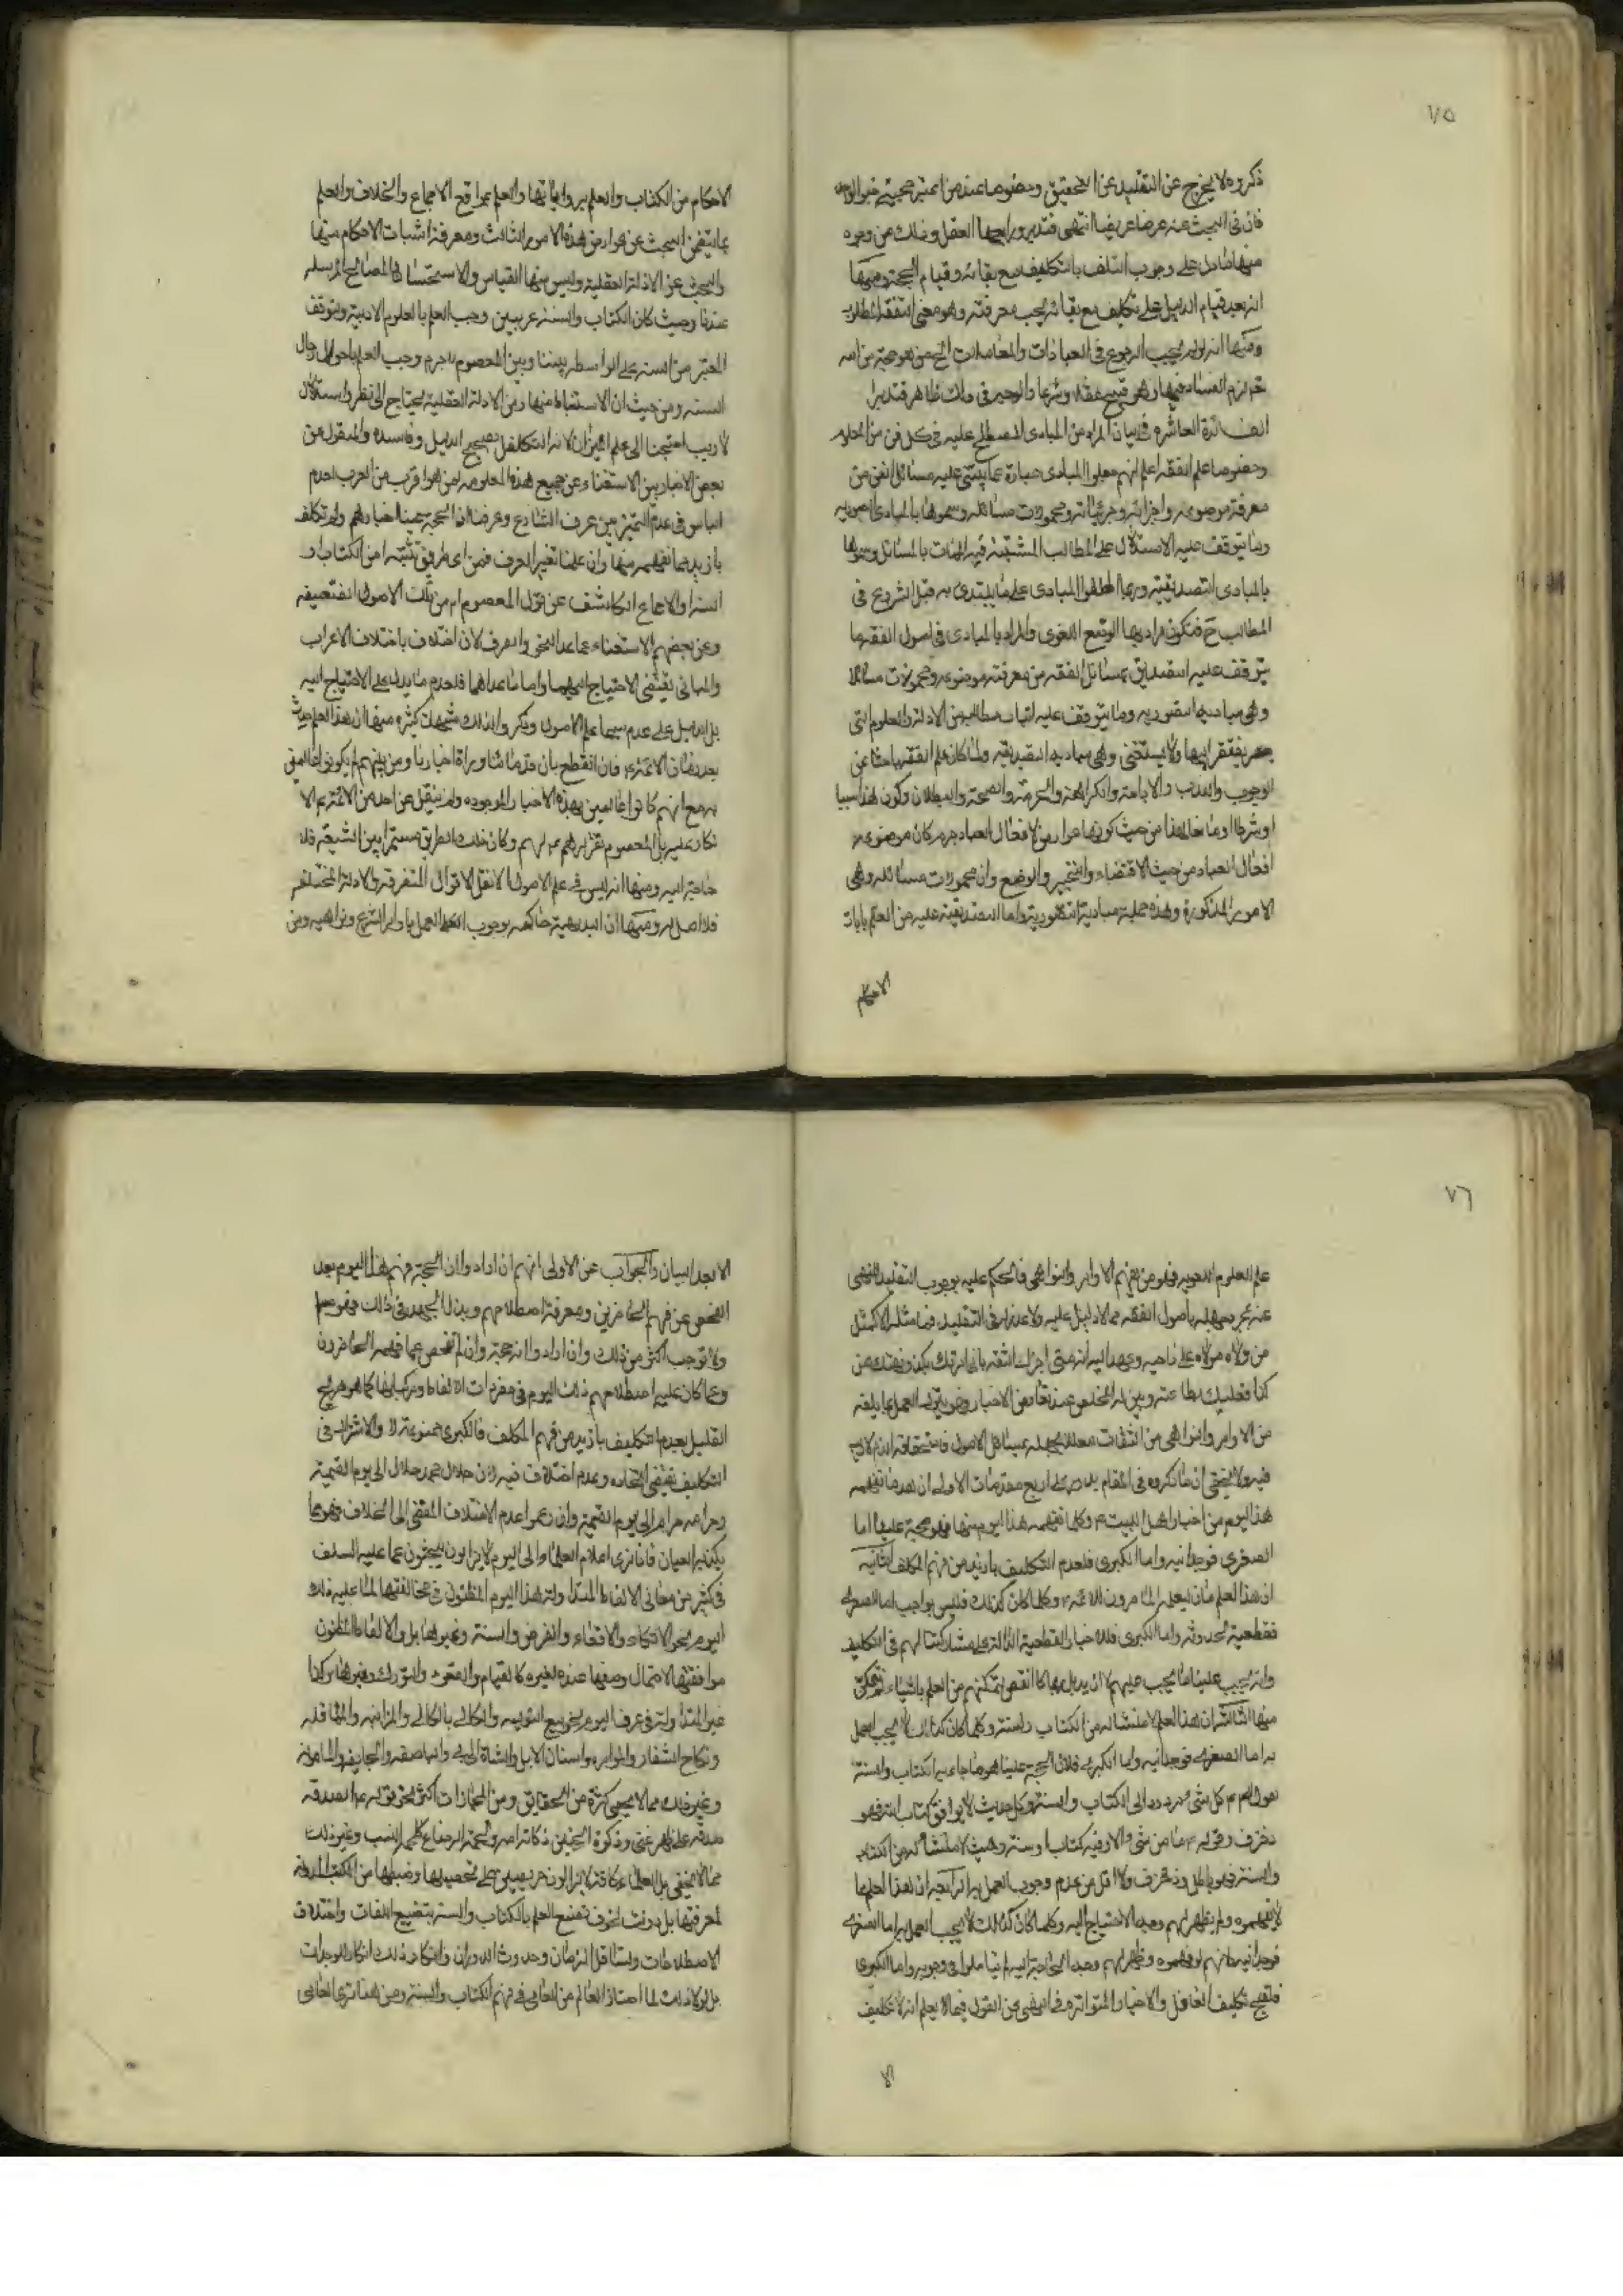 ٧٥
ذكروه لا يخرج عن التقليد عن التحقيق وخصوصا عند من اعتبر حجية خبر الواحد
فان في البحث عنه عرضا عريضا انتهى فتدبر ورابعها العقل وذلك من وجوه
منها مادل على وجوب التكليف مع بقائه وقيام الحجة ومنها
انه بعد قيام الدليل على تكليف مع بقائه يجب معرفته وهو معنى التفقه المطلوب
ومنها انه لو لم يجب الرجوع في العبادات والمعاملات الى من هو حجة من الله
لزم الفساد فيها وهو قبيح عقلا وشرعا والوجه في ذلك ظاهر فتدبر
الفائدة العاشرة في بيان المراد من المبادى المصطلح عليه في كل فن من العلوم
وخصوصا علم الفقه اعلم انهم جعلوا المبادى عبارة عما يبتنى عليه مسائل الفن من
معرفة موضوعه واجزائه وجزئياته ومحمولات مسائله وسموها بالمبادى التصورية
وما يتوقف عليه الاستدلال على المطالب المثبتة فيه بالمسائل وسموها
بالمبادى التصديقية وربما اطلقوا المبادى على ما يبتدى به قبل الشروع في
المطالب فتكون مرادبها الوضع اللغوى والمراد بالمبادى في اصول الفقه ما
يتوقف عليه التصديق بمسائل الفقه من معرفة موضوعه ومحمولات مسائله
وهي مباديه التصورية وما يتوقف عليه اثبات مطالبه من الادلة والعلوم التى
يفتقر اليها ولا يستغنى وهي مباديه التصديقية ولما كان علم الفقه باحثا عن
الوجوب والندب والاباحة والكراهة والحرمة والصحة والبطلان وكون هذا سببا
او شرطا او مانعا لهذا من حيث كونها عوارض لافعال العباد جرم كان موضوعه
افعال العباد من حيث الاقتضاء والتخيير والوضع وان محمولات مسائله هي
الامور المذكورة وهذه جملة مباديه التصورية واما التصديقية عليه من العلم بايات
الاحكام
الاحكام من الكتاب والعلم برواياتها والعلم بمواقع الاجماع والخلاف والعلم
بما يتضمن البحث عن عوارض هذه الامور الثالث ومعرفة اثبات الاحكام منها
والبحث عن الادلة العقلية وليس منها القياس والاستحسان والمصالح المرسلة
عندنا وحيث كان الكتاب والسنة عربيين وجب العلم بالعلوم الادبية وتوقف
المعتبر من السنة على الواسطة بيننا وبين المعصوم لاجرم وجب العلم باحوال رجال
السنة ومن حيث ان الاستنباط منها ومن الادلة العقلية يحتاج الى نظر واستدلال
لاريب احتجنا الى علم الميزان لانه المتكفل بصحيح الدليل وفاسده والمنقول عن
بعض الاخباريين الاستغناء عن جميع هذه العلوم لمن هو اقرب من العرب لعدم
التباس في عدم التمييز بين عرف الشارع وعرفنا اذ الحجة علينا اخبارهم ولم نكلف
بازيد مما نفهمه منها وان علمنا تغير العرف فمن اى طريق نثبته امن الكتاب او
السنة او الاجماع الكاشف عن قول المعصوم ام من تلك الاصول الضعيفة
وعن بعضهم الاستغناء عما عدا النحو والصرف لان اختلاف باختلاف الاعراب
والمباني يقتضى الاحتياج اليهما واما ماعداهما فلعدم ما يدل على الاحتياج اليه
بل الدليل على عدم سيما علم الاصول وذكروا لذلك شبهات كثيرة منها ان هذا العلم حدث
بعد زمان الائمة فان القطع بان قدمائنا ورواة اخبارنا ومن يليهم لم يكونوا عالمين
به مع انهم كانوا عاملين بهذه الاخبار الموجوده ولم ينقل عن احد من الائمة الا
نكار عليهم بل المعصوم يقرارهم وكان ذلك الطريق مستمرا بين الشيعة فلا
حاجة اليه ومنها انه ليس في علم الاصول الا نقل الاقوال المتفرقة والادلة المختلفة
فلا اصل له ومنها ان البديهية حاكمة بوجوب العمل باوامر الشرع ونواهيه ومن
٧٦
علم العلوم اللغوية فهو من يفهم الاوامر والنواهى فالحكم عليه بوجوب التقليد المنهى
عنه بمجرد جهله باصول الفقه مما لا دليل عليه ولا عذر له في التقليد فما مثله الا كمثل
من ولاه مولاه على ناحية وعهد اليه انه متى اخبرك الثقة بانى امرتك بكذا ونهيتك عن
كذا فعليك بطاعته وبين له المخلص عند تعارض الاخبار وهو يترك العمل بما بلغه
من الاوامر والنواهى من الثقات معللا بجهله بمسائل الاصول فاستحقاقه الذم لا ريب
فيه ولا يخفى ان ما ذكروه في المقام يدور على اربع مقدمات الاولى ان هذا ما نفهمه
هذا اليوم من اخبار اهل البيت ع وكلما نفهمه هذا اليوم منها فهو حجة علينا اما
الصغرى فوجدانية واما الكبرى فلعدم التكليف بازيد من فهم المكلف الثانية
ان هذا العلم مما لم يعلمه المعاصرون للائمة ع وكلما كان كذلك فليس بواجب اما الصغرى
فقطعية لحدوثه واما الكبرى فللاخبار القطعية الدالة على مشاركتنا لهم في التكليف
وانه يجب علينا ما يجب عليهم
منها الثالثة ان هذا العلم لا منشا له من الكتاب والسنة وكلما كان كذلك لا يجب العمل
به اما الصغرى فوجدانية واما الكبرى فلان الحجة علينا هو ما جاء به الكتاب والسنة
لقولهم كل شئ مردود الى الكتاب والسنة وكل حديث لا يوافق كتاب الله فهو
زخرف وقوله ع ما من شئ الا وفيه كتاب او سنة وحيث لا منشا له من الكتاب
والسنة فهو باطل وزخرف ولا اقل من عدم وجوب العمل به الرابعة ان هذا العلم مما
لا يفهموه ولم يظهر لهم وجه الاحتياج اليه وكلما كان كذلك لا يجب العمل به اما الصغرى
فوجدانية لانهم لو فهموه وظهر لهم وجه الحاجة اليه لم يتاملوا في وجوبه واما الكبرى
فلقبح تكليف الغافل والاخبار المتواترة في النهى عن القول فيما لا يعلم انه لا تكليف
الا
الا بعد البيان والجواب عن الاولى انهم ان ارادوا ان الحجة فهم هذا اليوم بعد
الفحص عن فهم الحاضرين ومعرفة اصطلاحهم وبذل الجهد في ذلك فهو مسلم
ولا نوجب اكثر من ذلك وان ارادوا انه حجة وان لم نفحص عما فهمه الحاضرون
وعما كان عليه اصطلاحهم ذلك اليوم في مفردات الالفاظ ومركباتها كما هو صريح
التعليل بعدم التكليف بازيد من فهم المكلف فالكبرى ممنوعة والاشتراك في
التكليف يقتضى اتحاده وعدم اختلاف فيه لان حلال محمد حلال الى يوم القيمة
وحرامه حرام الى يوم القيمة وان زعموا عدم الاختلاف المفضى الى الخلاف فهو مما
يكذبه العيان فانا نرى اعلام العلماء والى اليوم لا يزالون يبحثون عما عليه السلف
في كثير من معانى الالفاظ المتداولة هذا اليوم المظنون في مخالفتها لما عليه ذلك
اليوم نحو الاتكاء والاقعاء والفرض والسنة وغيرها بل والالفاظ المظنون
موافقتها لاحتمال وضعها عنده لغيره كالقيام والقعود والتورك وغيرها وكذا
غير المتداولة في عرف اليوم نحو بيع التولية والكالى بالكالى والمزابنة والمحاقلة
ونكاح الشغار والموابره واسنان الابل والشاة
وغير ذلك مما لا يحصى كثرة من الحقايق ومن المجازات اكثر نحو قوله ع الصدقة
صدقة على ظهر غنى وذكوة الجنين ذكاة امه ولحمة الرضاع كلحمة النسب وغير ذلك
مما لا يخفى بل العلماء كافة لا يزالون حريصين على تحصيلها وضبطها من الكتب المدونة
لمعرفتها بل دونت لخوف تضييع العلم بالكتاب والسنة بتضييع اللغات واختلاف
الاصطلاحات ولتثاقل الزمان وحدوث الدوران وانكار ذلك انكار للوجدان
بل لولا ذلك لما امتاز العالم من العامى في فهم الكتاب والسنة ومن هنا ترى العامى